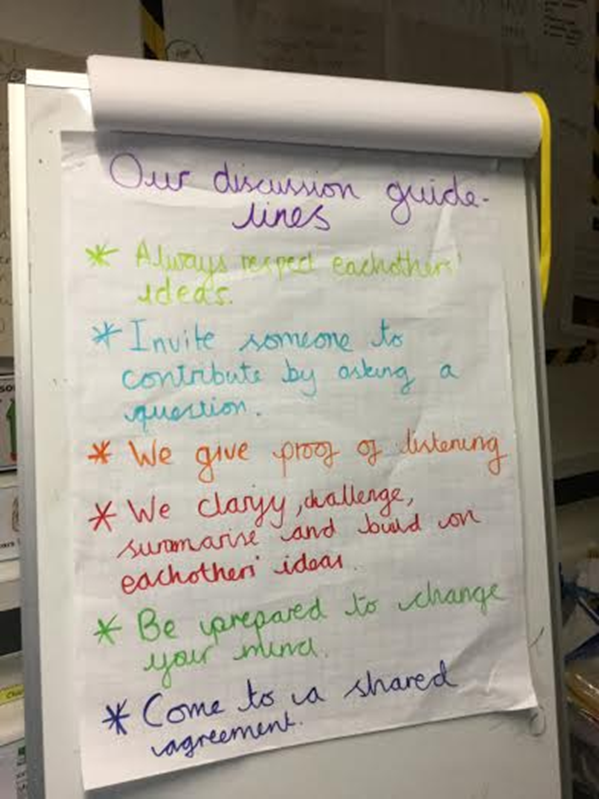 Our discussion guide-
lines
* Always respect eachothers'
ideas.
* Invite someone to
contribute by asking a
question.
* We give proof of listening
* We clarify, challenge,
summarise and build on
eachothers' ideas.
* Be prepared to change
your mind.
* Come to a shared
agreement.